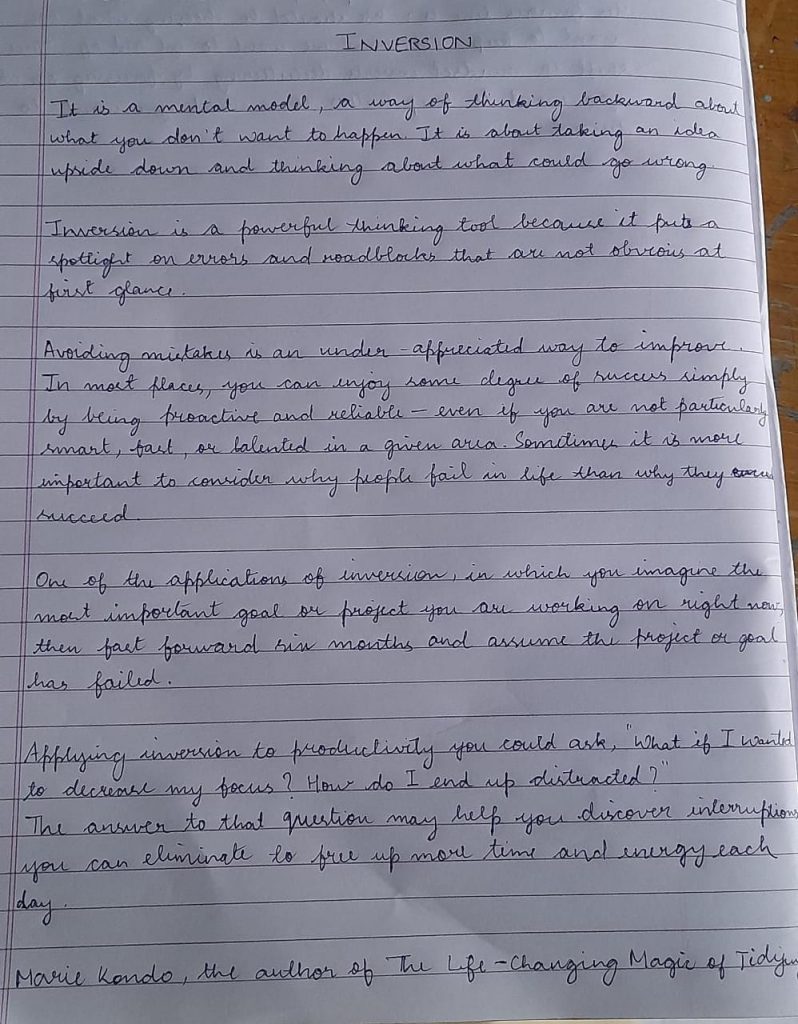 INVERSION
It is a mental model, a way of thinking backward about
what you don't want to happen. It is about taking an idea
upside down and thinking about what could go wrong.
Inversion is a powerful thinking tool because it puts a
spotlight on errors and roadblocks that are not obvious at
first glance.
Avoiding mistakes is an under-appreciated way to improve.
In most places, you can enjoy some degree of success simply
by being proactive and reliable - even if you are not particularly
smart, fast, or talented in a given area. Sometimes it is more
important to consider why people fail in life than why they
succeed.
One of the applications of inversion, in which you imagine the
most important goal or project you are working on right now,
then fast forward six months and assume the project or goal
has failed.
Applying inversion to productivity you could ask, "What if I wanted
to decrease my focus? How do I end up distracted?"
The answer to that question may help you discover interruptions
you can eliminate to free up more time and energy each
day.
Marie Kondo, the author of The Life-Changing Magic of